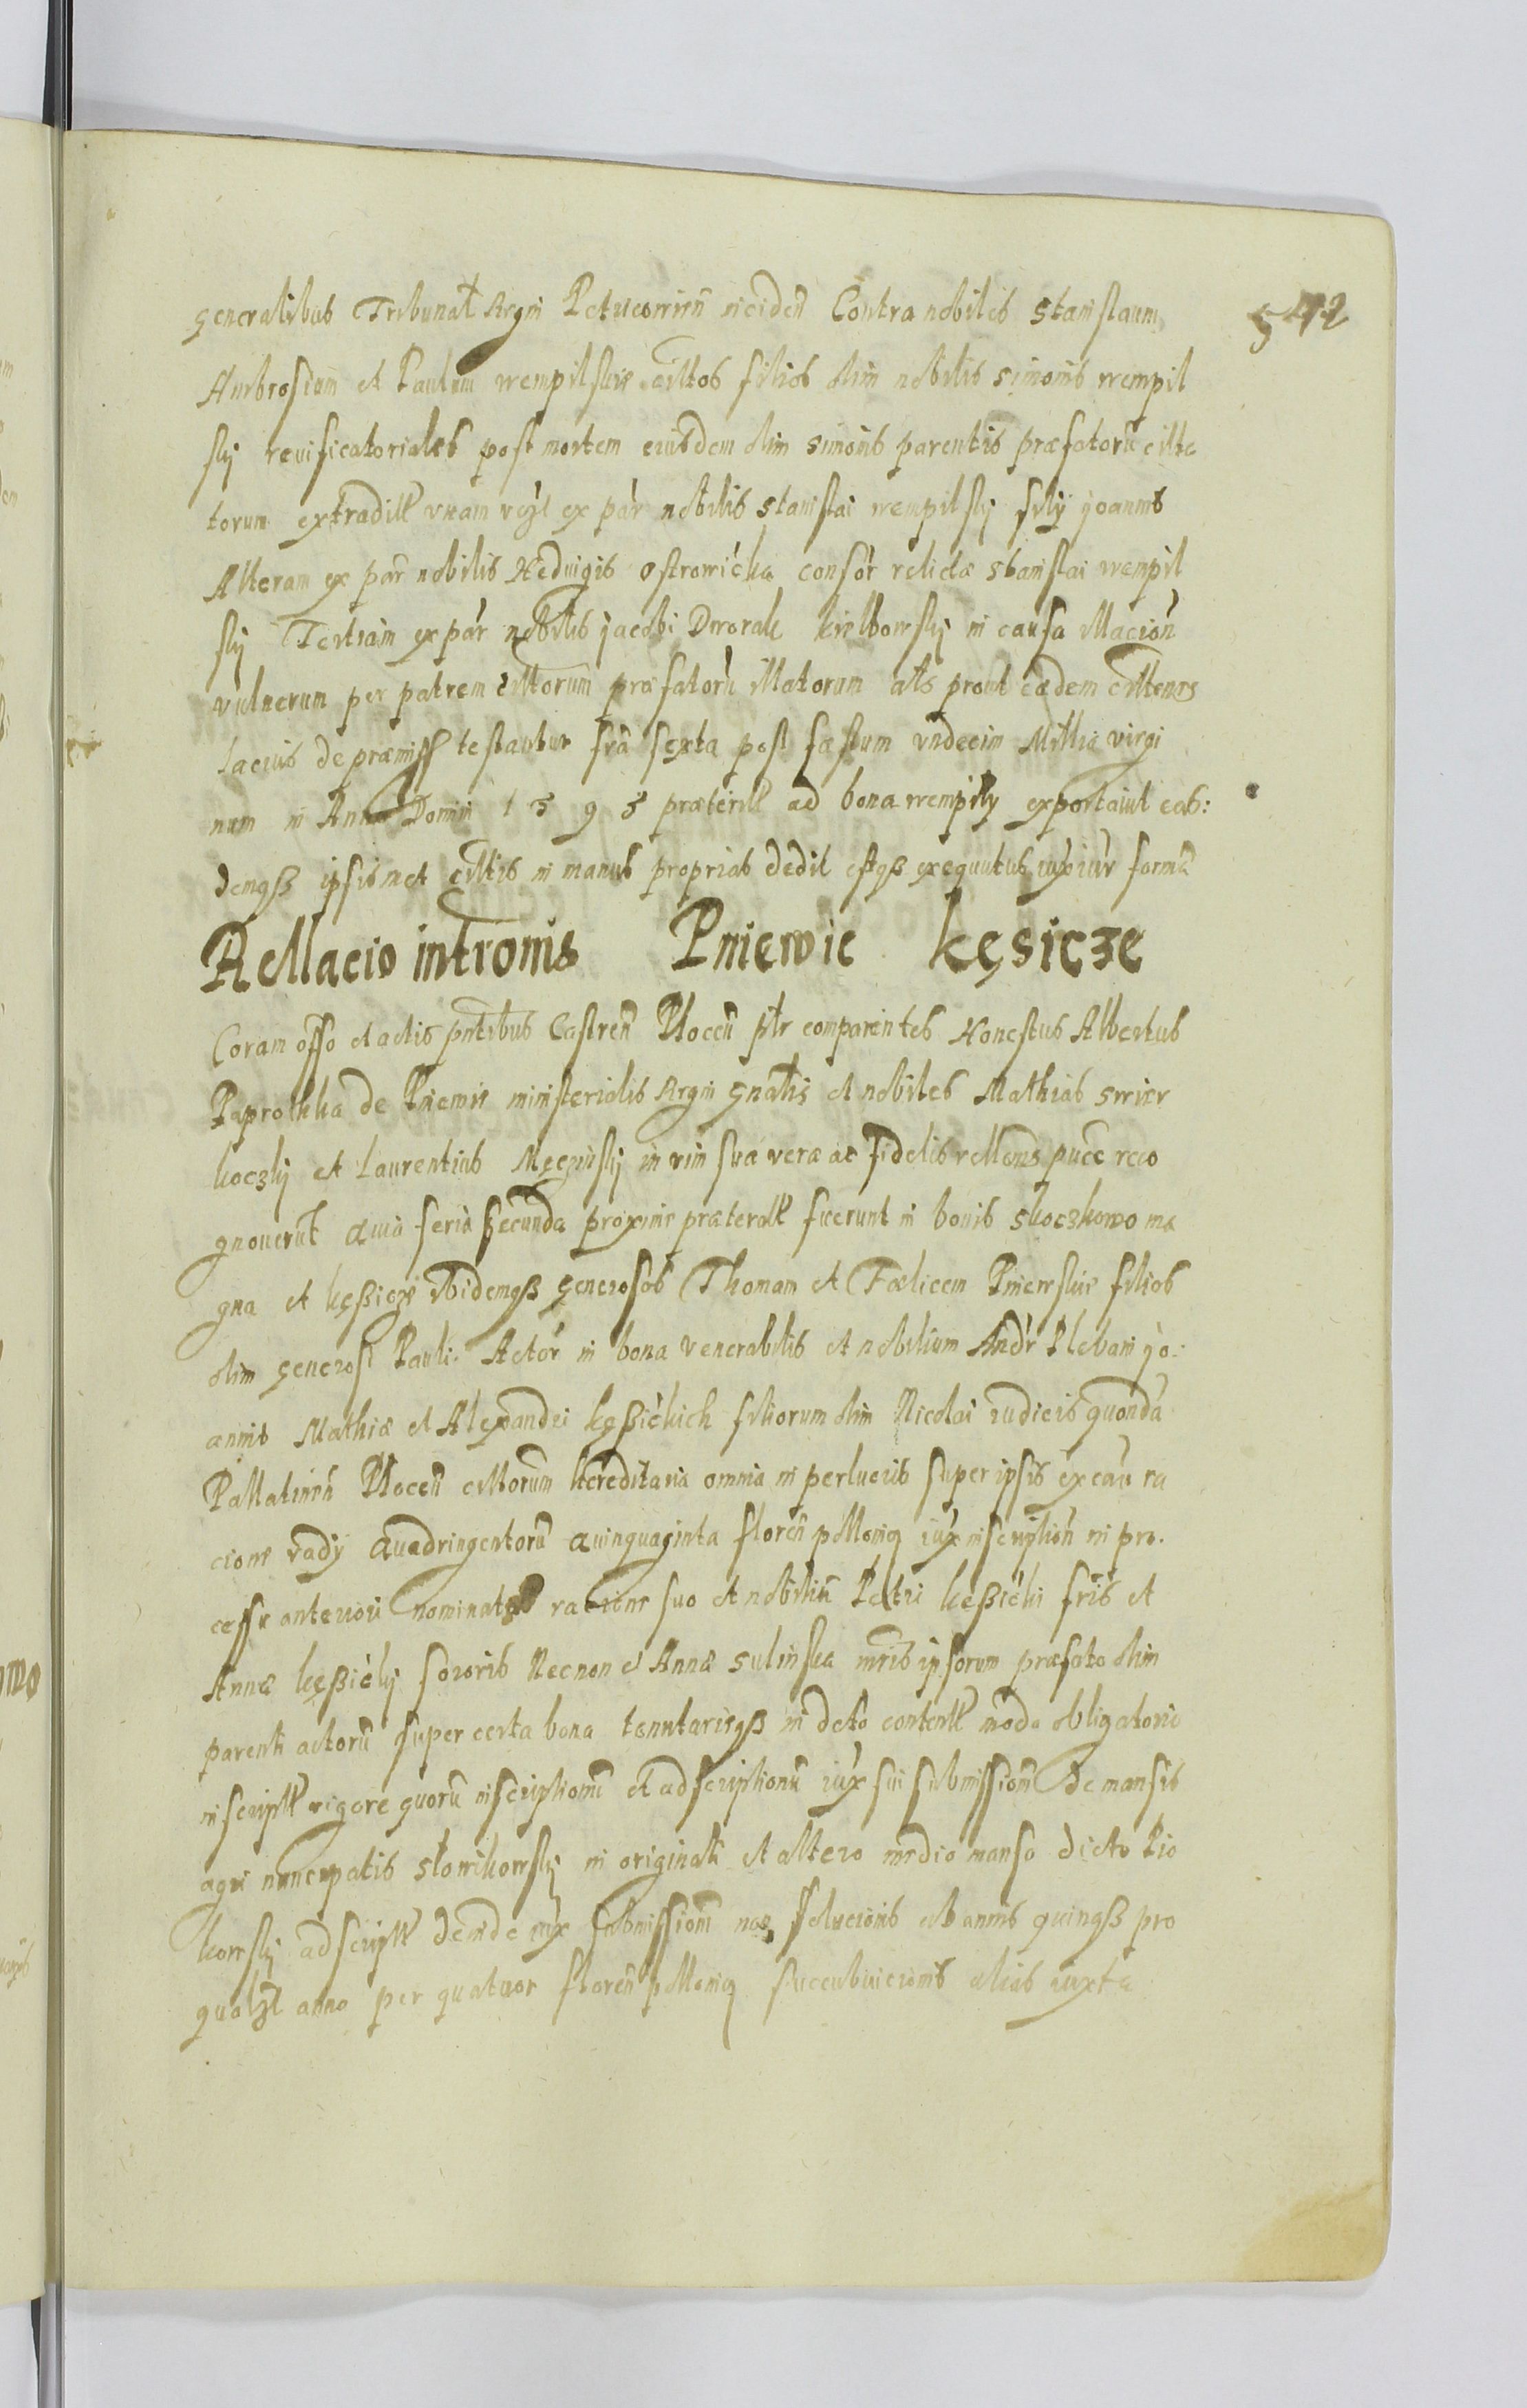 542
generalibus Tribunal Regni Petricouien inciden Contra nobiles Stanislaum
Ambrosium et Paulum wempilskie cittos filios olim nobilis Simonis wempil
skj reuificatoriales post mortem eiusdem olim Simonis parentis praefatorū citta
torum extradill vnam vzl ex pár nobilis Stanislai wempilskj filij joannis
Alteram ex pár nobilis Heduigis Ostrowícka consór relictae Stanislai wempil
skj Tertiam ex pár nobilis jacobi Dworak kielbowskj in causa Illacion
vulnerum per patrem cittorum praefatorū Illatorum als prout eaedem cittens
Lacius de praemiss testantur fria sexta post faestum vndecim Millia virgi
num in Anno Domini 1 5 9 5 praeterill ad bona wempily exportauit eas:
demqß ipsismet cittis in manus proprias dedit estqß exequutus iux iur formā
Rellacio intromis Pniewie kęsicze
Coram offo et actis pntibus Castren Plocen pslr comparentes Honestus Albertus
Paprothka de Pniewie ministerialis Regni gnalis et nobiles Mathias swier
koczkj et Laurentius Męczinskj in vim suae verae ac fidelis rellcons pucc reco
gnouerūt Quia feria secunda proxime praeterall fuerunt in bonis skoczkowo ma
gna et kęßicze Ibidemqß generosos Thomam et Foelicem Pniewskie filios
olim generosi Pauli. Actór in bona venerabilis et nobilium Andr Plebani jo:
annis Mathiae et Alexandri kęßickich filiorum olim Nicolai iudicis quondā
Pallatinen Plocen cittorum hereditaria omnia in perlucris super ipsis ex cau ra
cione vadÿ Quadringentorū Quinquaginta floren pollonig iux inscription in pro.
cessu anteriori nominat racione suo et nobiliū Petri keßicki fris et
Annae kęßickj sororis Necnon et Annae sulinska mris ipsorum praefato olim
parenti actorū super certa bona tenutariaqß in dcto contentll modo obligatorio
inscriptll vigore quorū inscriptionū et adscriptionū iux sui submissionem De mansis
agri nuncupatis słowikowskj in originali et altero medio manso dicto Pio
kowskj adscriptll deinde iux submissionem non solucionis ob annis quinqß pro
quolzl anno per quatuor floren pollonig succubuicionis alias iuxta